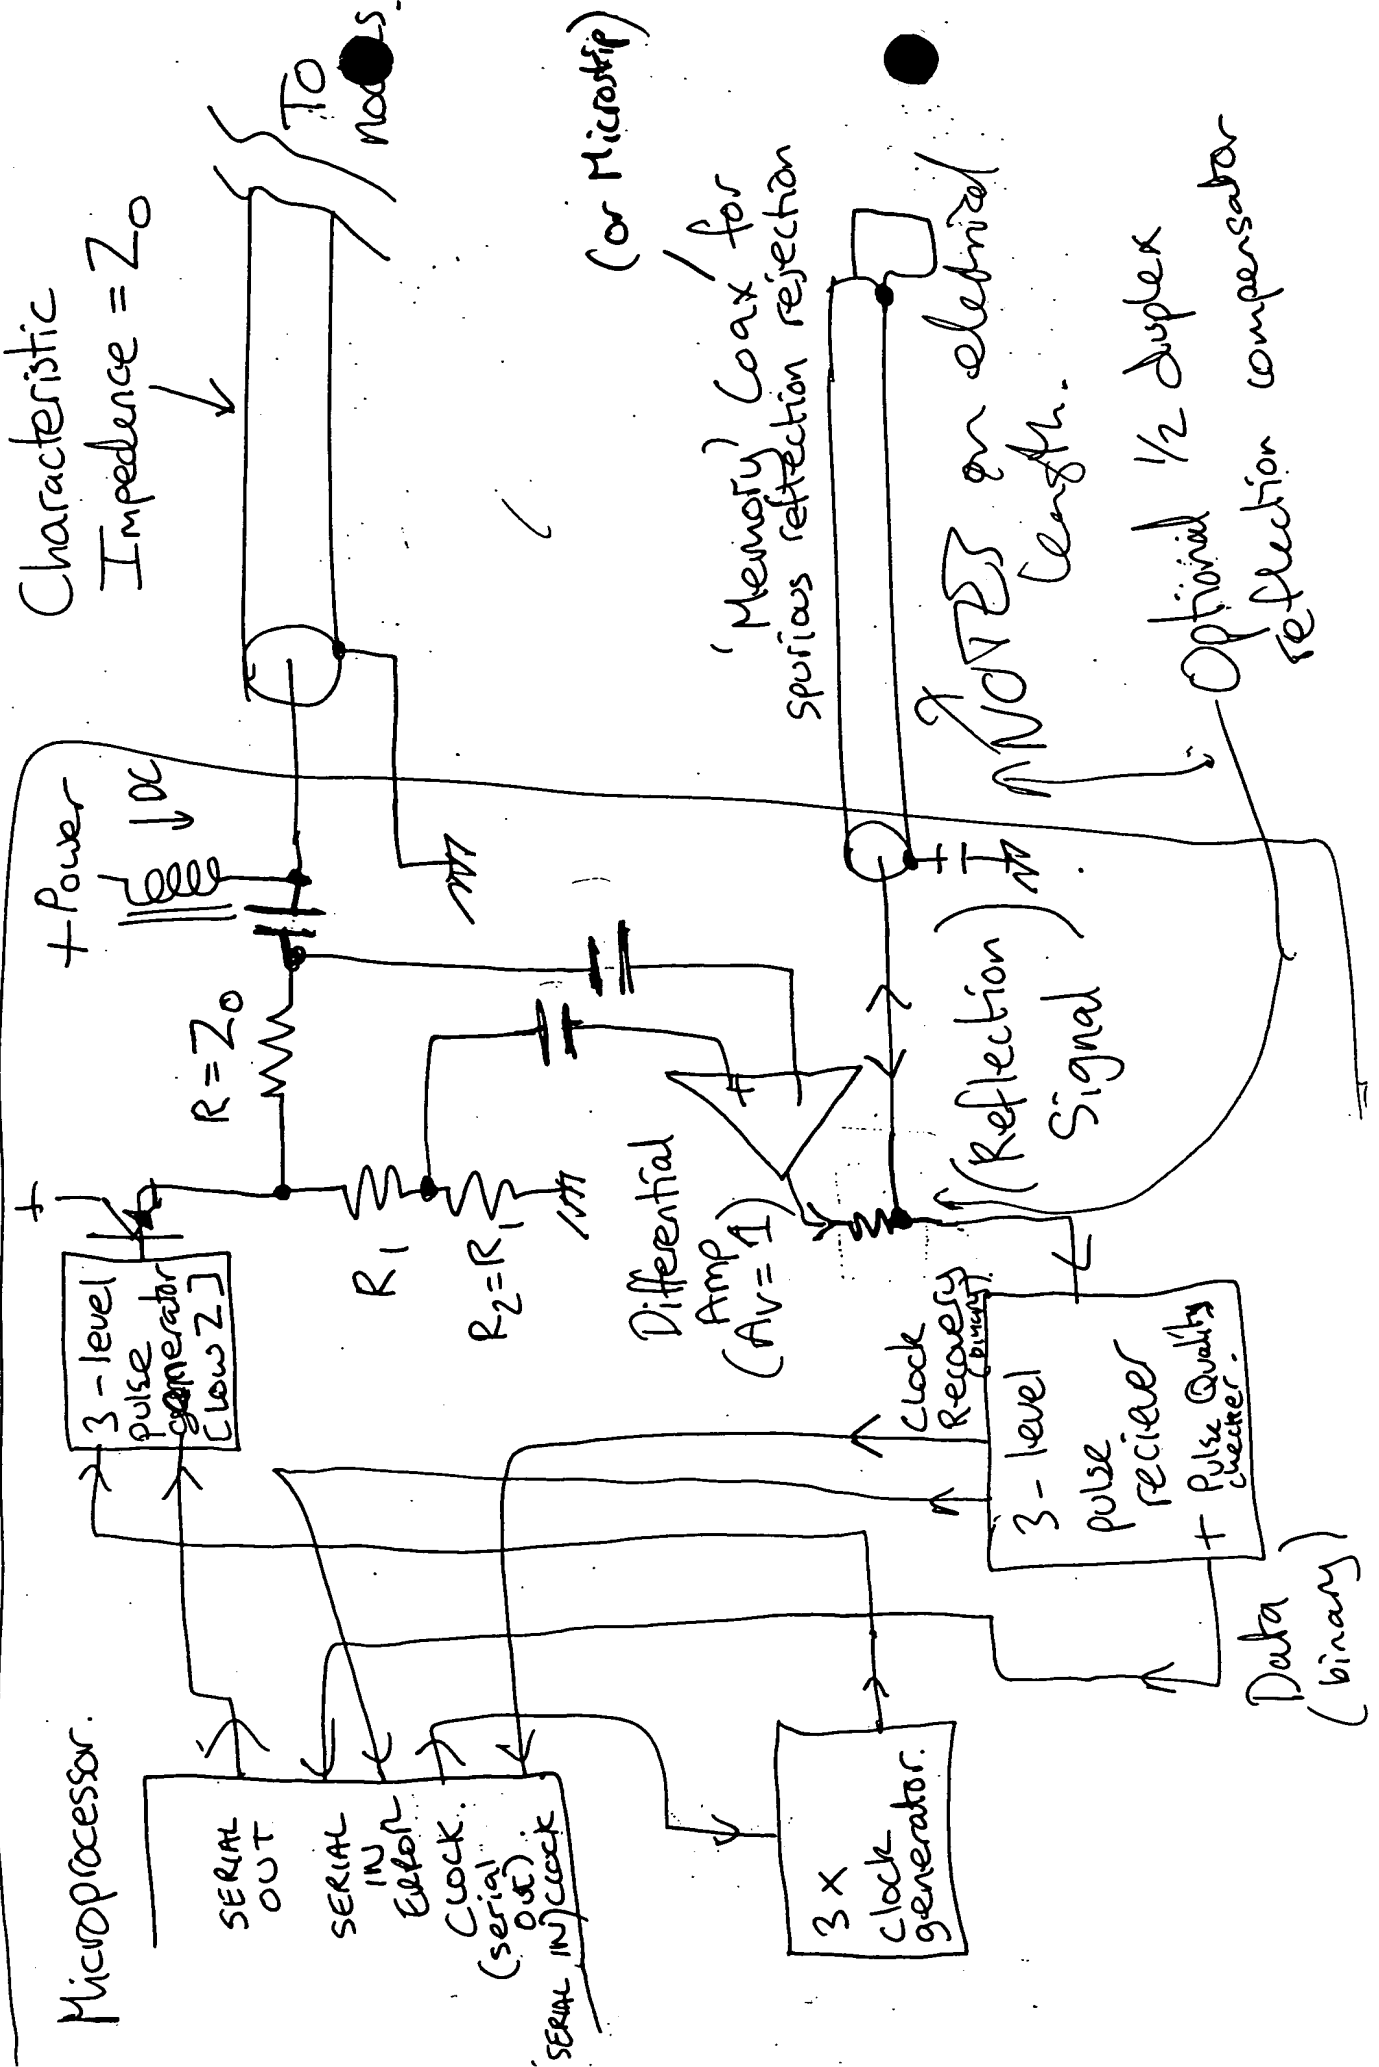 Microprocessor.
SERIAL
OUT
SERIAL
IN
ERROR
CLOCK.
(serial
out).
SERIAL IN CLOCK
3 x
Clock
generator.
3-level
pulse
generator
[low Z]
+
+Power
DC
R = Z0
R1
R2=R1
Differential
Amp
(Av=1)
+
Clock
Recovery
(binary).
3-level
pulse
reciever
+ Pulse Quality
checker.
Data
(binary)
(Reflection)
Signal
Characteristic
Impedence = Z0
To
(or Microstrip)
'Memory' Coax for
spurious reflection rejection
NOTES on electrical
length.
Optional 1/2 duplex
reflection compensator